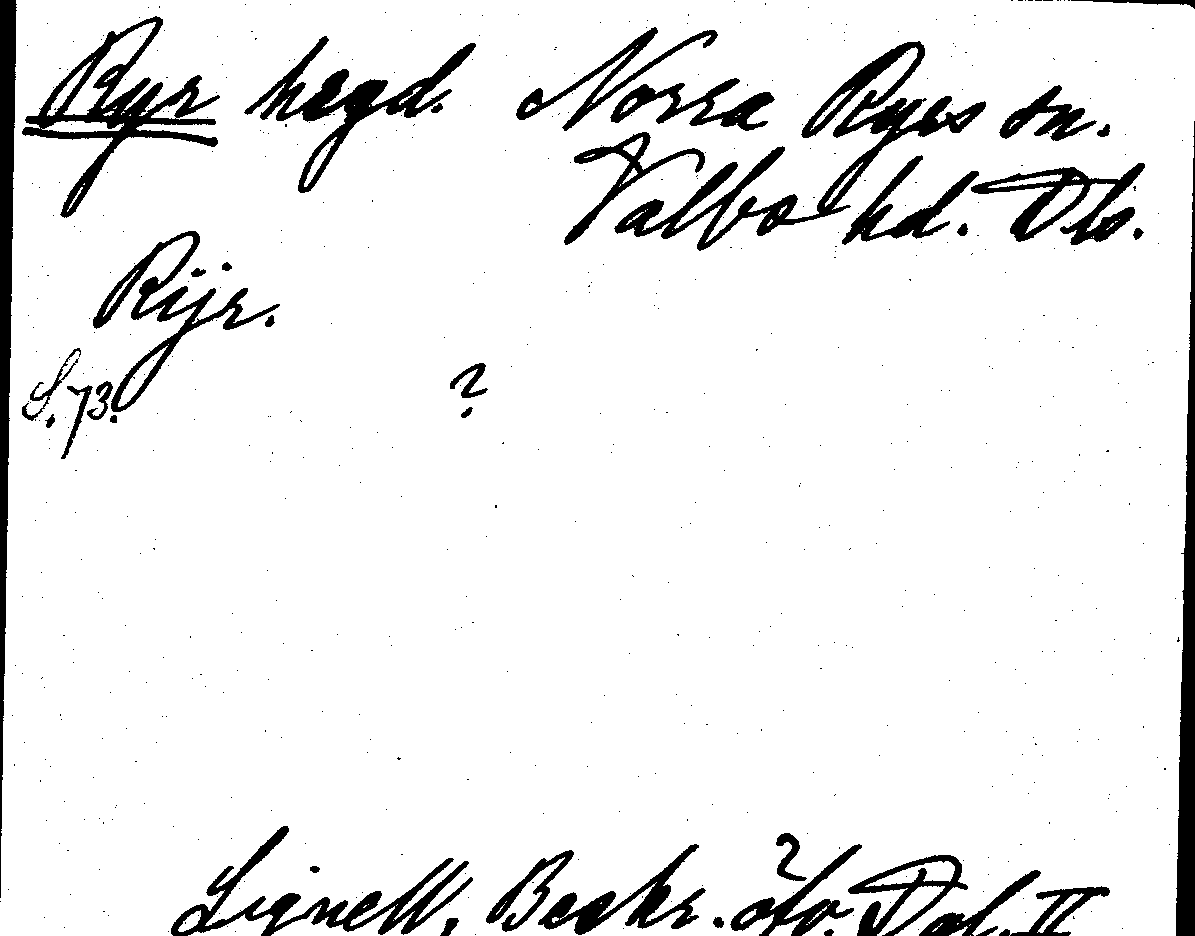 Ryr hrgd. Norra Ryrs sn.
Valbo hd. Dls.
Rijr.
S. 73. ?
Lignell, Beskr. öfv. Dal. II